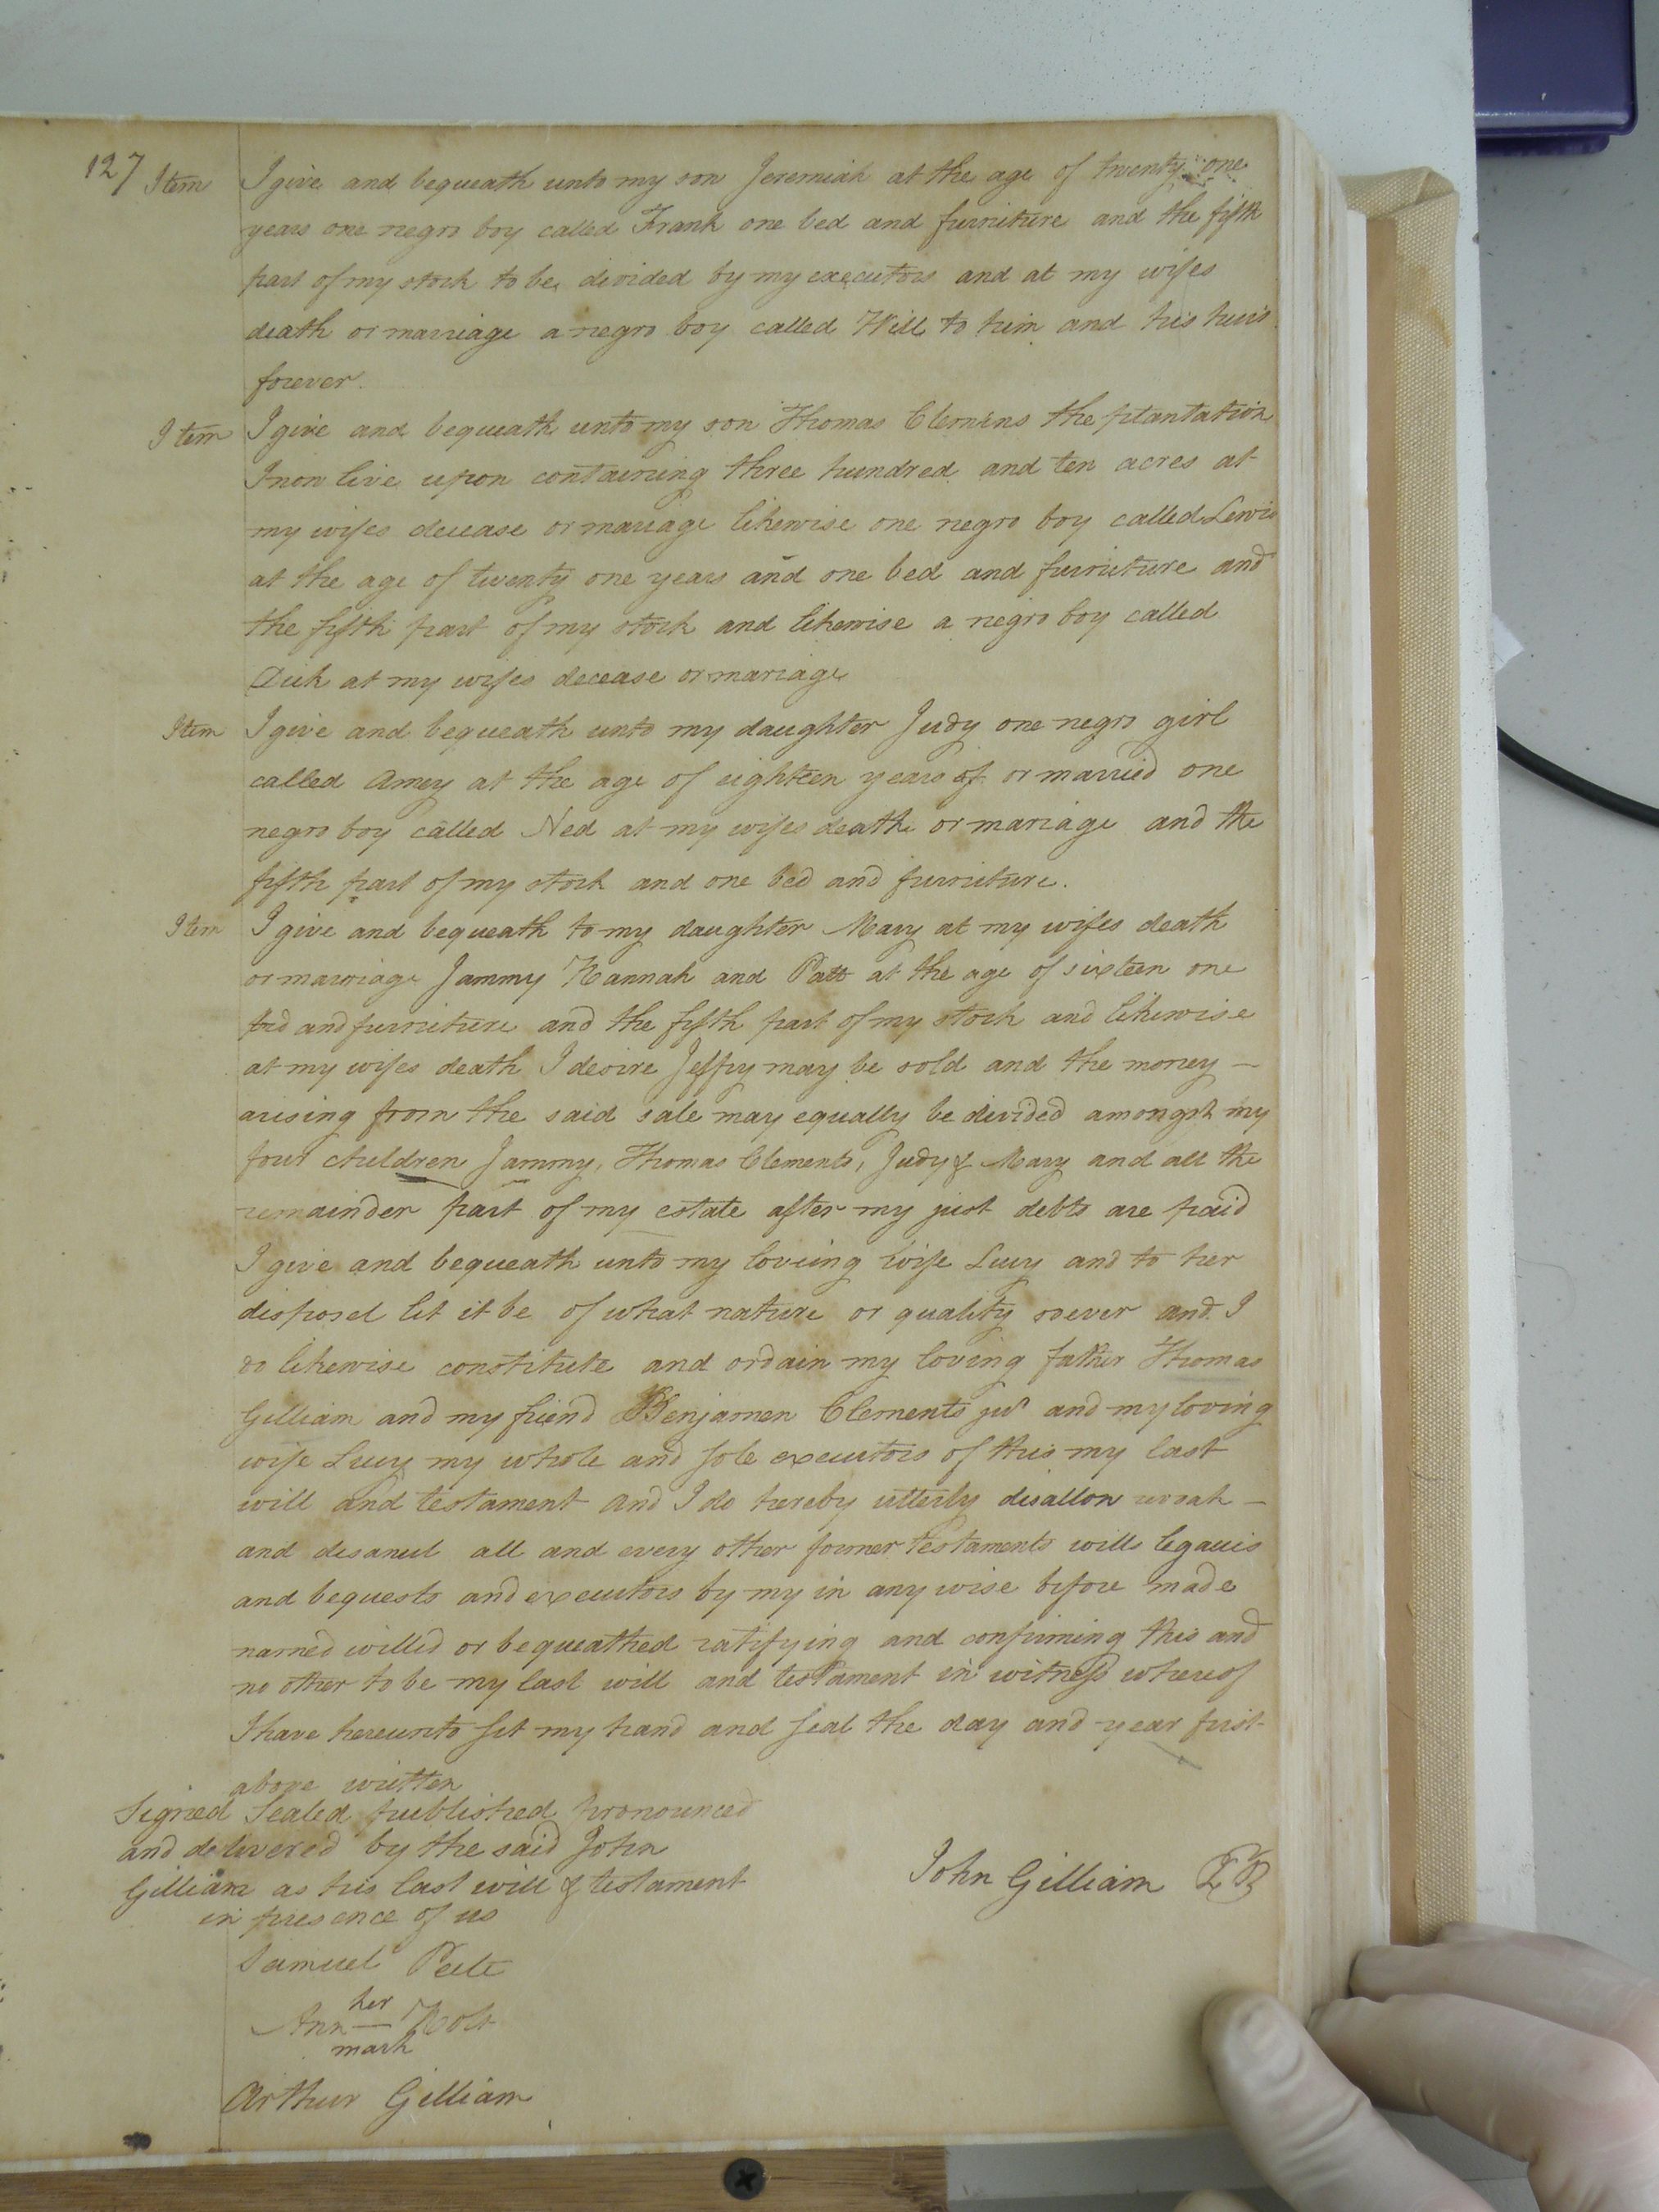 127 Item I give and bequeath unto my son Jeremiah at the age of twenty one
years one negro boy called Frank one bed and furniture and the fifth
part of my stock to be divided by my executors and at my wifes
death or marriage a negro boy called Will to him and his heirs
forever.
Item I give and bequeath unto my son Thomas Clemens the plantation
I now live upon containing three hundred and ten acres at
my wifes decease or mariage likewise one negro boy called Lewis
at the age of twenty one years and one bed and furniture and
the fifth part of my stock and likewise a negro boy called
Dick at my wifes decease or mariage
Item I give and bequeath unto my daughter Judy one negro girl
called Amey at the age of eighteen years of or married one
negro boy called Ned at my wifes death or mariage and the
fifth part of my stock and one bed and furniture.
Item I give and bequeath to my daughter Mary at my wifes death
or marriage Jammy Hannah and Patt at the age of sixteen one
bed and furniture and the fifth part of my stock and likewise
at my wifes death I desire Jeffry may be sold and the money —
arising from the said sale may equally be divided amongst my
four children Jammy, Thomas Clements, Judy & Mary and all the
remainder part of my estate after my just debts are paid
I give and bequeath unto my loving wife Lucy and to her
disposel let it be of what nature or quality soever and I
do likewise constitute and ordain my loving father Thomas
Gilliam and my friend Benjamen Clements jur and my loving
wife Lucy my whole and sole executors of this my last
will and testament and I do hereby utterly disallow revoak —
and disanul all and every other former testaments wills legacies
and bequests and executors by my in any wise before made
named willed or bequeathed ratifying and confirming this and
no other to be my last will and testament in witness whereof
I have hereunto set my hand and seal the day and year first
above written
Signed sealed published pronounced
and delivered by the said John
Gilliam as his last will & testament
in presence of us
John Gilliam
Samuel Peete
her
Ann — Holt
mark
Arthur Gilliam